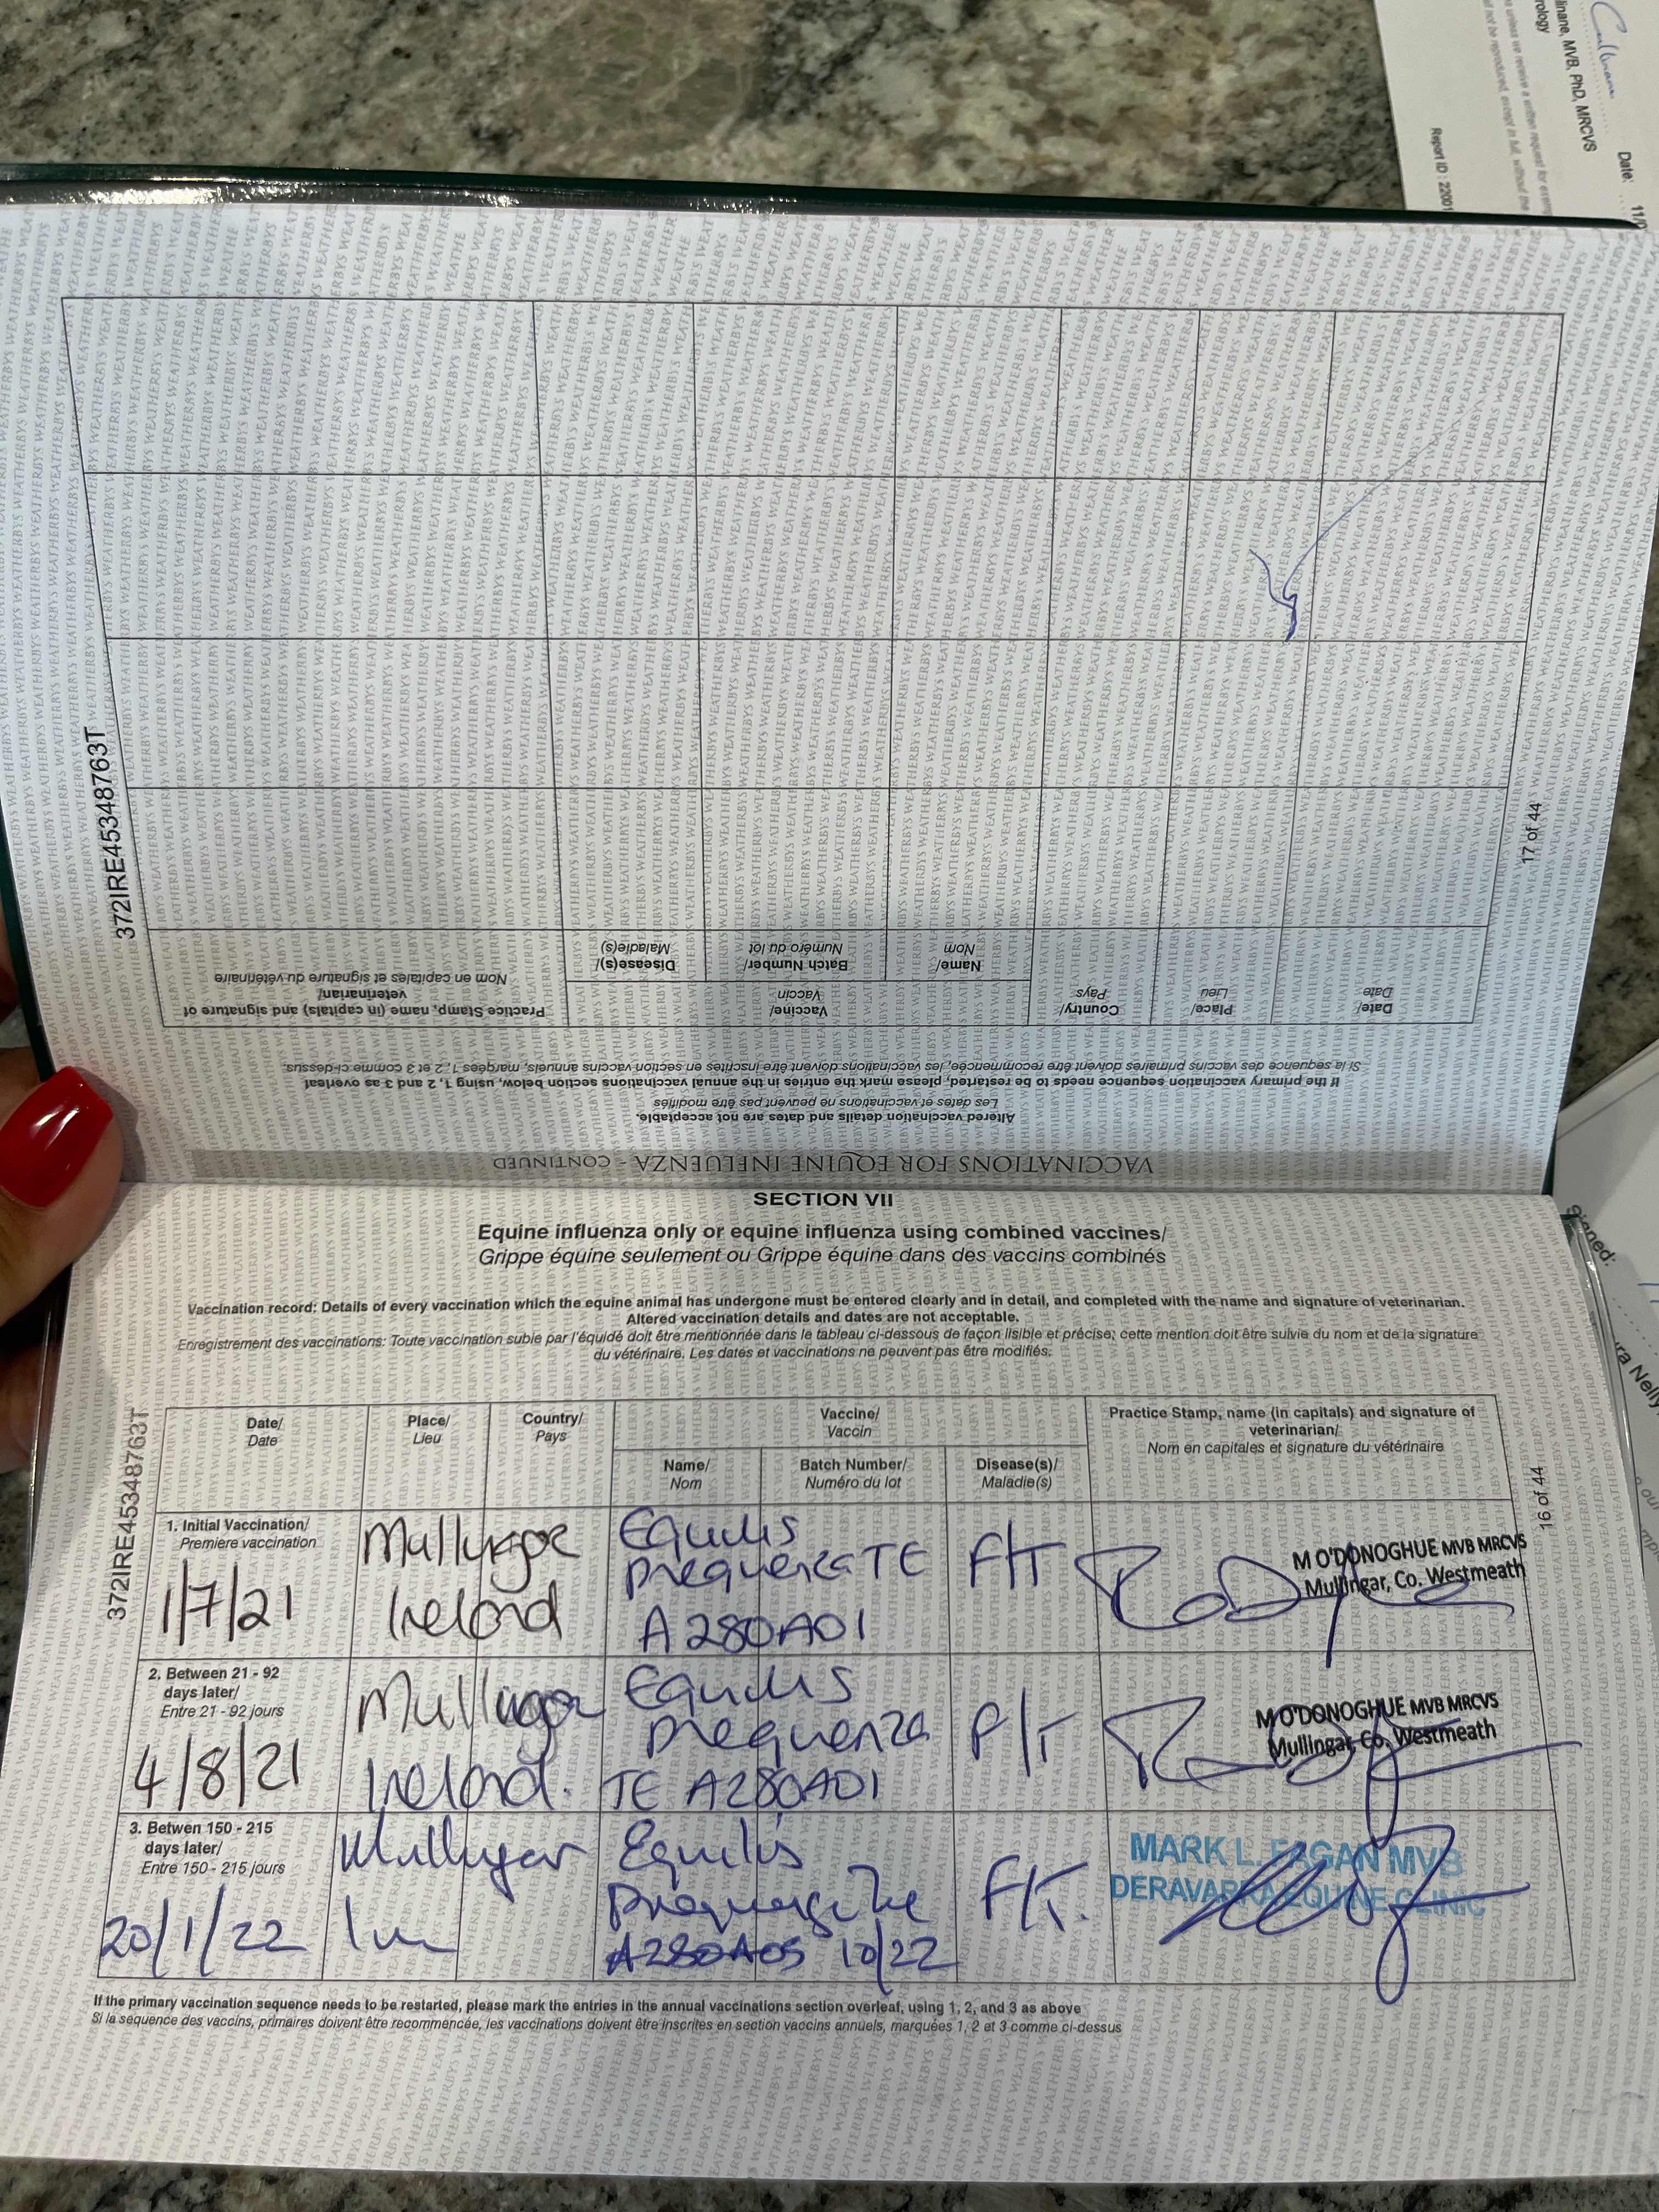 Cullinane
linane, MVB, PhD, MRCVS
rology
Date: 11/0
Report ID : 22001
372IRE45348763T
17 of 44
VACCINATIONS FOR EQUINE INFLUENZA - CONTINUED
Altered vaccination details and dates are not acceptable.
Les dates et vaccinations ne peuvent pas être modifiés
If the primary vaccination sequence needs to be restarted, please mark the entries in the annual vaccinations section below, using 1, 2 and 3 as overleaf
Si la séquence des vaccins primaires doivent être recommencée, les vaccinations doivent être inscrites en section vaccins annuels, marqées 1, 2 et 3 comme ci-dessus.
Date/
Date
Place/
Lieu
Country/
Pays
Vaccine/
Vaccin
Name/
Nom
Batch Number/
Numéro du lot
Disease(s)/
Maladie(s)
Practice Stamp, name (in capitals) and signature of
veterinarian/
Nom en capitales et signature du vétérinaire
SECTION VII
Equine influenza only or equine influenza using combined vaccines/
Grippe équine seulement ou Grippe équine dans des vaccins combinés
Vaccination record: Details of every vaccination which the equine animal has undergone must be entered clearly and in detail, and completed with the name and signature of veterinarian.
Altered vaccination details and dates are not acceptable.
Enregistrement des vaccinations: Toute vaccination subie par l'équidé doit être mentionnée dans le tableau ci-dessous de façon lisible et précise; cette mention doit être suivie du nom et de la signature
du vétérinaire. Les dates et vaccinations ne peuvent pas être modifiés.
372IRE45348763T
16 of 44
Date/
Date
Place/
Lieu
Country/
Pays
Vaccine/
Vaccin
Name/
Nom
Batch Number/
Numéro du lot
Disease(s)/
Maladie(s)
Practice Stamp, name (in capitals) and signature of
veterinarian/
Nom en capitales et signature du vétérinaire
1. Initial Vaccination/
Premiere vaccination
1/7/21
Mullingar
Ireland
Equilis
Prequenza TE
A280A01
F/T
M O'DONOGHUE MVB MRCVS
Mullingar, Co. Westmeath
2. Between 21 - 92
days later/
Entre 21 - 92 jours
4/8/21
Mullingar
Ireland.
Equilis
Prequenza
TE A280A01
F/T
M O'DONOGHUE MVB MRCVS
Mullingar, Co. Westmeath
3. Betwen 150 - 215
days later/
Entre 150 - 215 jours
20/1/22
Mullingar
Equilis
Prequenza Te
A280A05 10/22
F/T.
MARK L. FAGAN MVB
DERAVARRA EQUINE CLINIC
If the primary vaccination sequence needs to be restarted, please mark the entries in the annual vaccinations section overleaf, using 1, 2, and 3 as above
Si la séquence des vaccins, primaires doivent être recommencée, les vaccinations doivent être inscrites en section vaccins annuels, marquées 1, 2 et 3 comme ci-dessus
Signed: